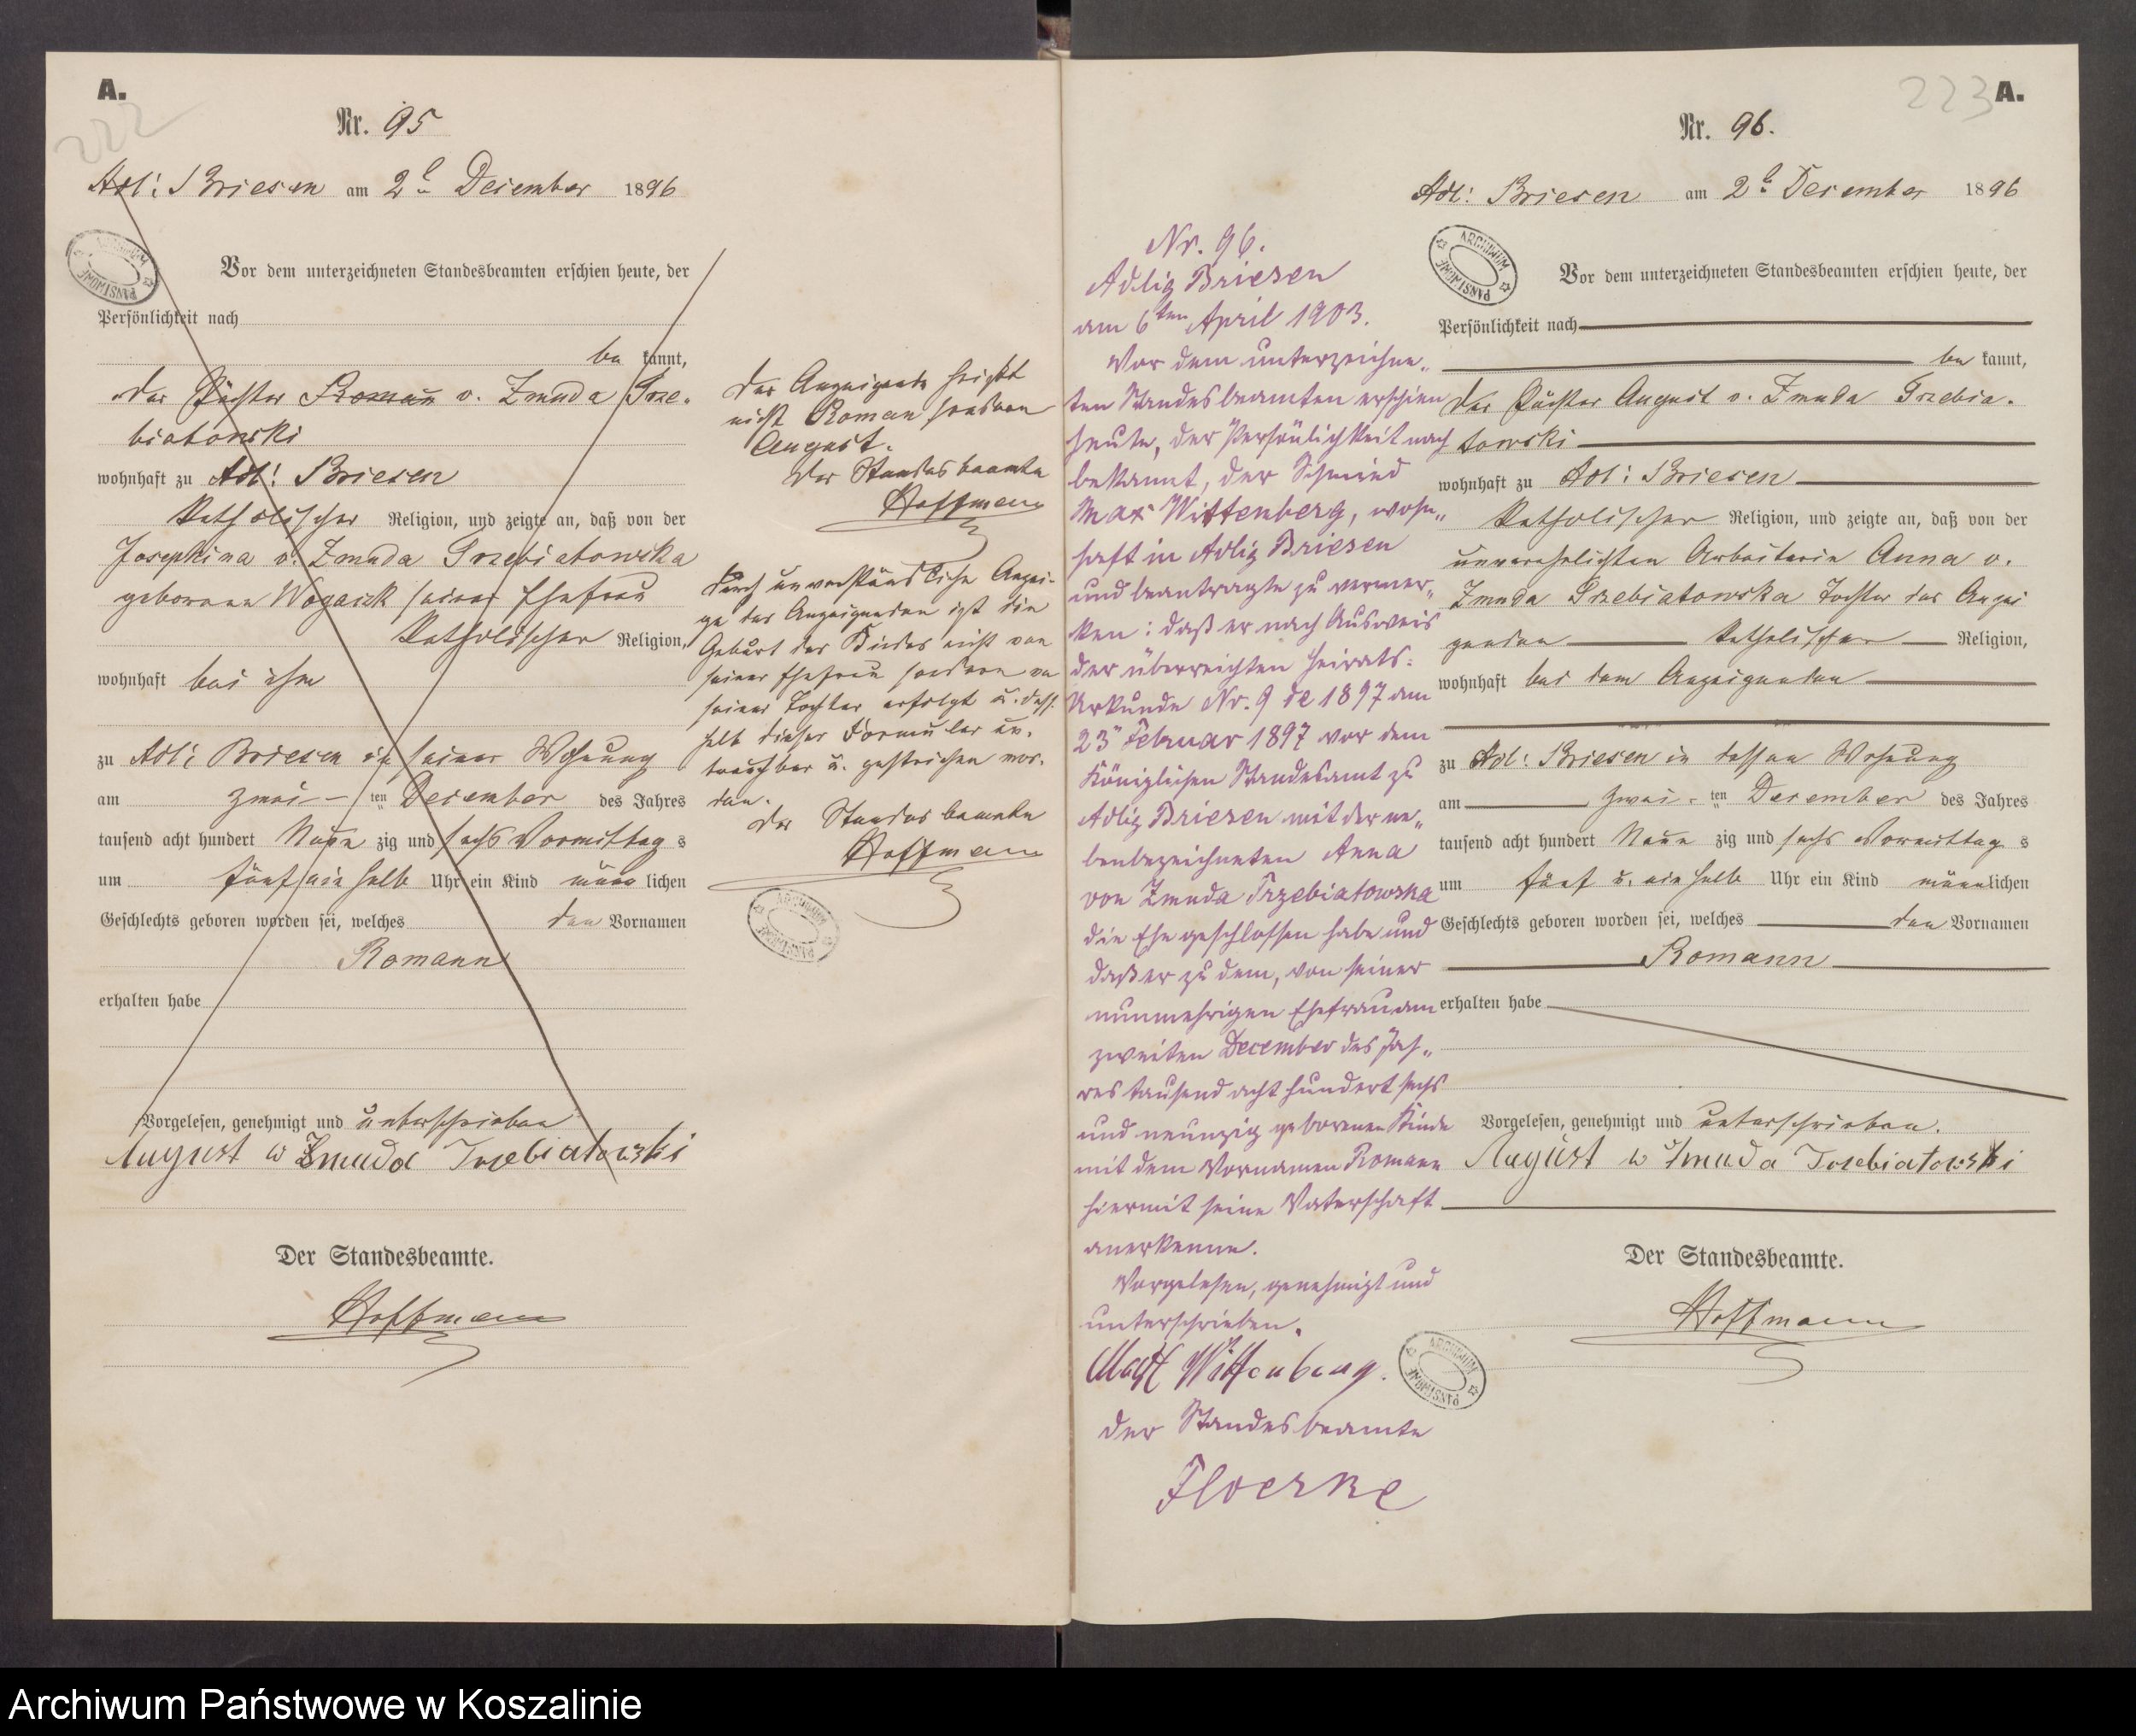 A.
222
Nr. 95
Adl: Briesen am 2t December 1896
Vor dem unterzeichneten Standesbeamten erschien heute, der
Persönlichkeit nach
be kannt,
der Pächter Roman v. Zmuda Trze-
biatowski
wohnhaft zu Adl: Briesen
katholischer Religion, und zeigte an, daß von der
Josephina v. Zmuda Trzebiatowska
geborene Wogack seiner Ehefrau
katholischer Religion,
wohnhaft bei ihm
zu Adl: Briesen in seiner Wohnung
am zwei- ten December des Jahres
tausend acht hundert Neun zig und sechs Vormittag s
um fünf ein halb Uhr ein Kind männ lichen
Geschlechts geboren worden sei, welches den Vornamen
Romann
erhalten habe
Vorgelesen, genehmigt und unterschrieben
August w Zmuda Trzebiatowski
Der Standesbeamte.
Hoffmann
Der Anzeigende heißt
nicht Roman sondern
August.
Der Standesbeamte
Hoffmann
Durch unverständliche Anzei-
ge des Anzeigenden ist die
Geburt des Kindes nicht von
seiner Ehefrau sondern von
seiner Tochter erfolgt u. desh.
halb dieser Formular un-
brauchbar u. gestrichen wor-
den.
Der Standesbeamte
Hoffmann
ARCHIWUM PAŃSTWOWE
223 A.
Nr. 96.
Adl: Briesen am 2t December 1896
ARCHIWUM PAŃSTWOWE
Vor dem unterzeichneten Standesbeamten erschien heute, der
Persönlichkeit nach
be kannt,
der Pächter August v. Zmuda Trzebia-
towski
wohnhaft zu Adl: Briesen
katholischer Religion, und zeigte an, daß von der
unverehelichten Arbeiterin Anna v.
Zmuda Trzebiatowska Tochter des Anzei
genden katholischer Religion,
wohnhaft bei dem Anzeigenden
zu Adl: Briesen in dessen Wohnung
am zwei- ten December des Jahres
tausend acht hundert Neun zig und sechs Vormittag s
um fünf u. ein halb Uhr ein Kind männlichen
Geschlechts geboren worden sei, welches den Vornamen
Romann
erhalten habe
Vorgelesen, genehmigt und unterschrieben.
August w Zmuda Trzebiatowski
Der Standesbeamte.
Hoffmann
Nr. 96.
Adlig Briesen
am 6ten April 1903.
Vor dem unterzeichne-
ten Standesbeamten erschien
heute, der Persönlichkeit nach
bekannt, der Schmied
Max Wittenberg, wohn-
haft in Adlig Briesen
und beantragte zu vermer-
ken: daß er nach Ausweis
der überreichten Heirats-
Urkunde Nr. 9 de 1897 am
23" Februar 1897 vor dem
Königlichen Standesamt zu
Adlig Briesen mit der ne-
benbezeichneten Anna
von Zmuda Trzebiatowska
die Ehe geschlossen habe und
daß er zu dem, von seiner
nunmehrigen Ehefrau am
zweiten December des Jah-
res tausend acht hundert sechs
und neunzig geborenen Kinde
mit dem Vornamen Romann
hiermit seine Vaterschaft
anerkenne.
Vorgelesen, genehmigt und
unterschrieben.
Max Wittenberg.
ARCHIWUM PAŃSTWOWE
der Standesbeamte
Floerke
Archiwum Państwowe w Koszalinie